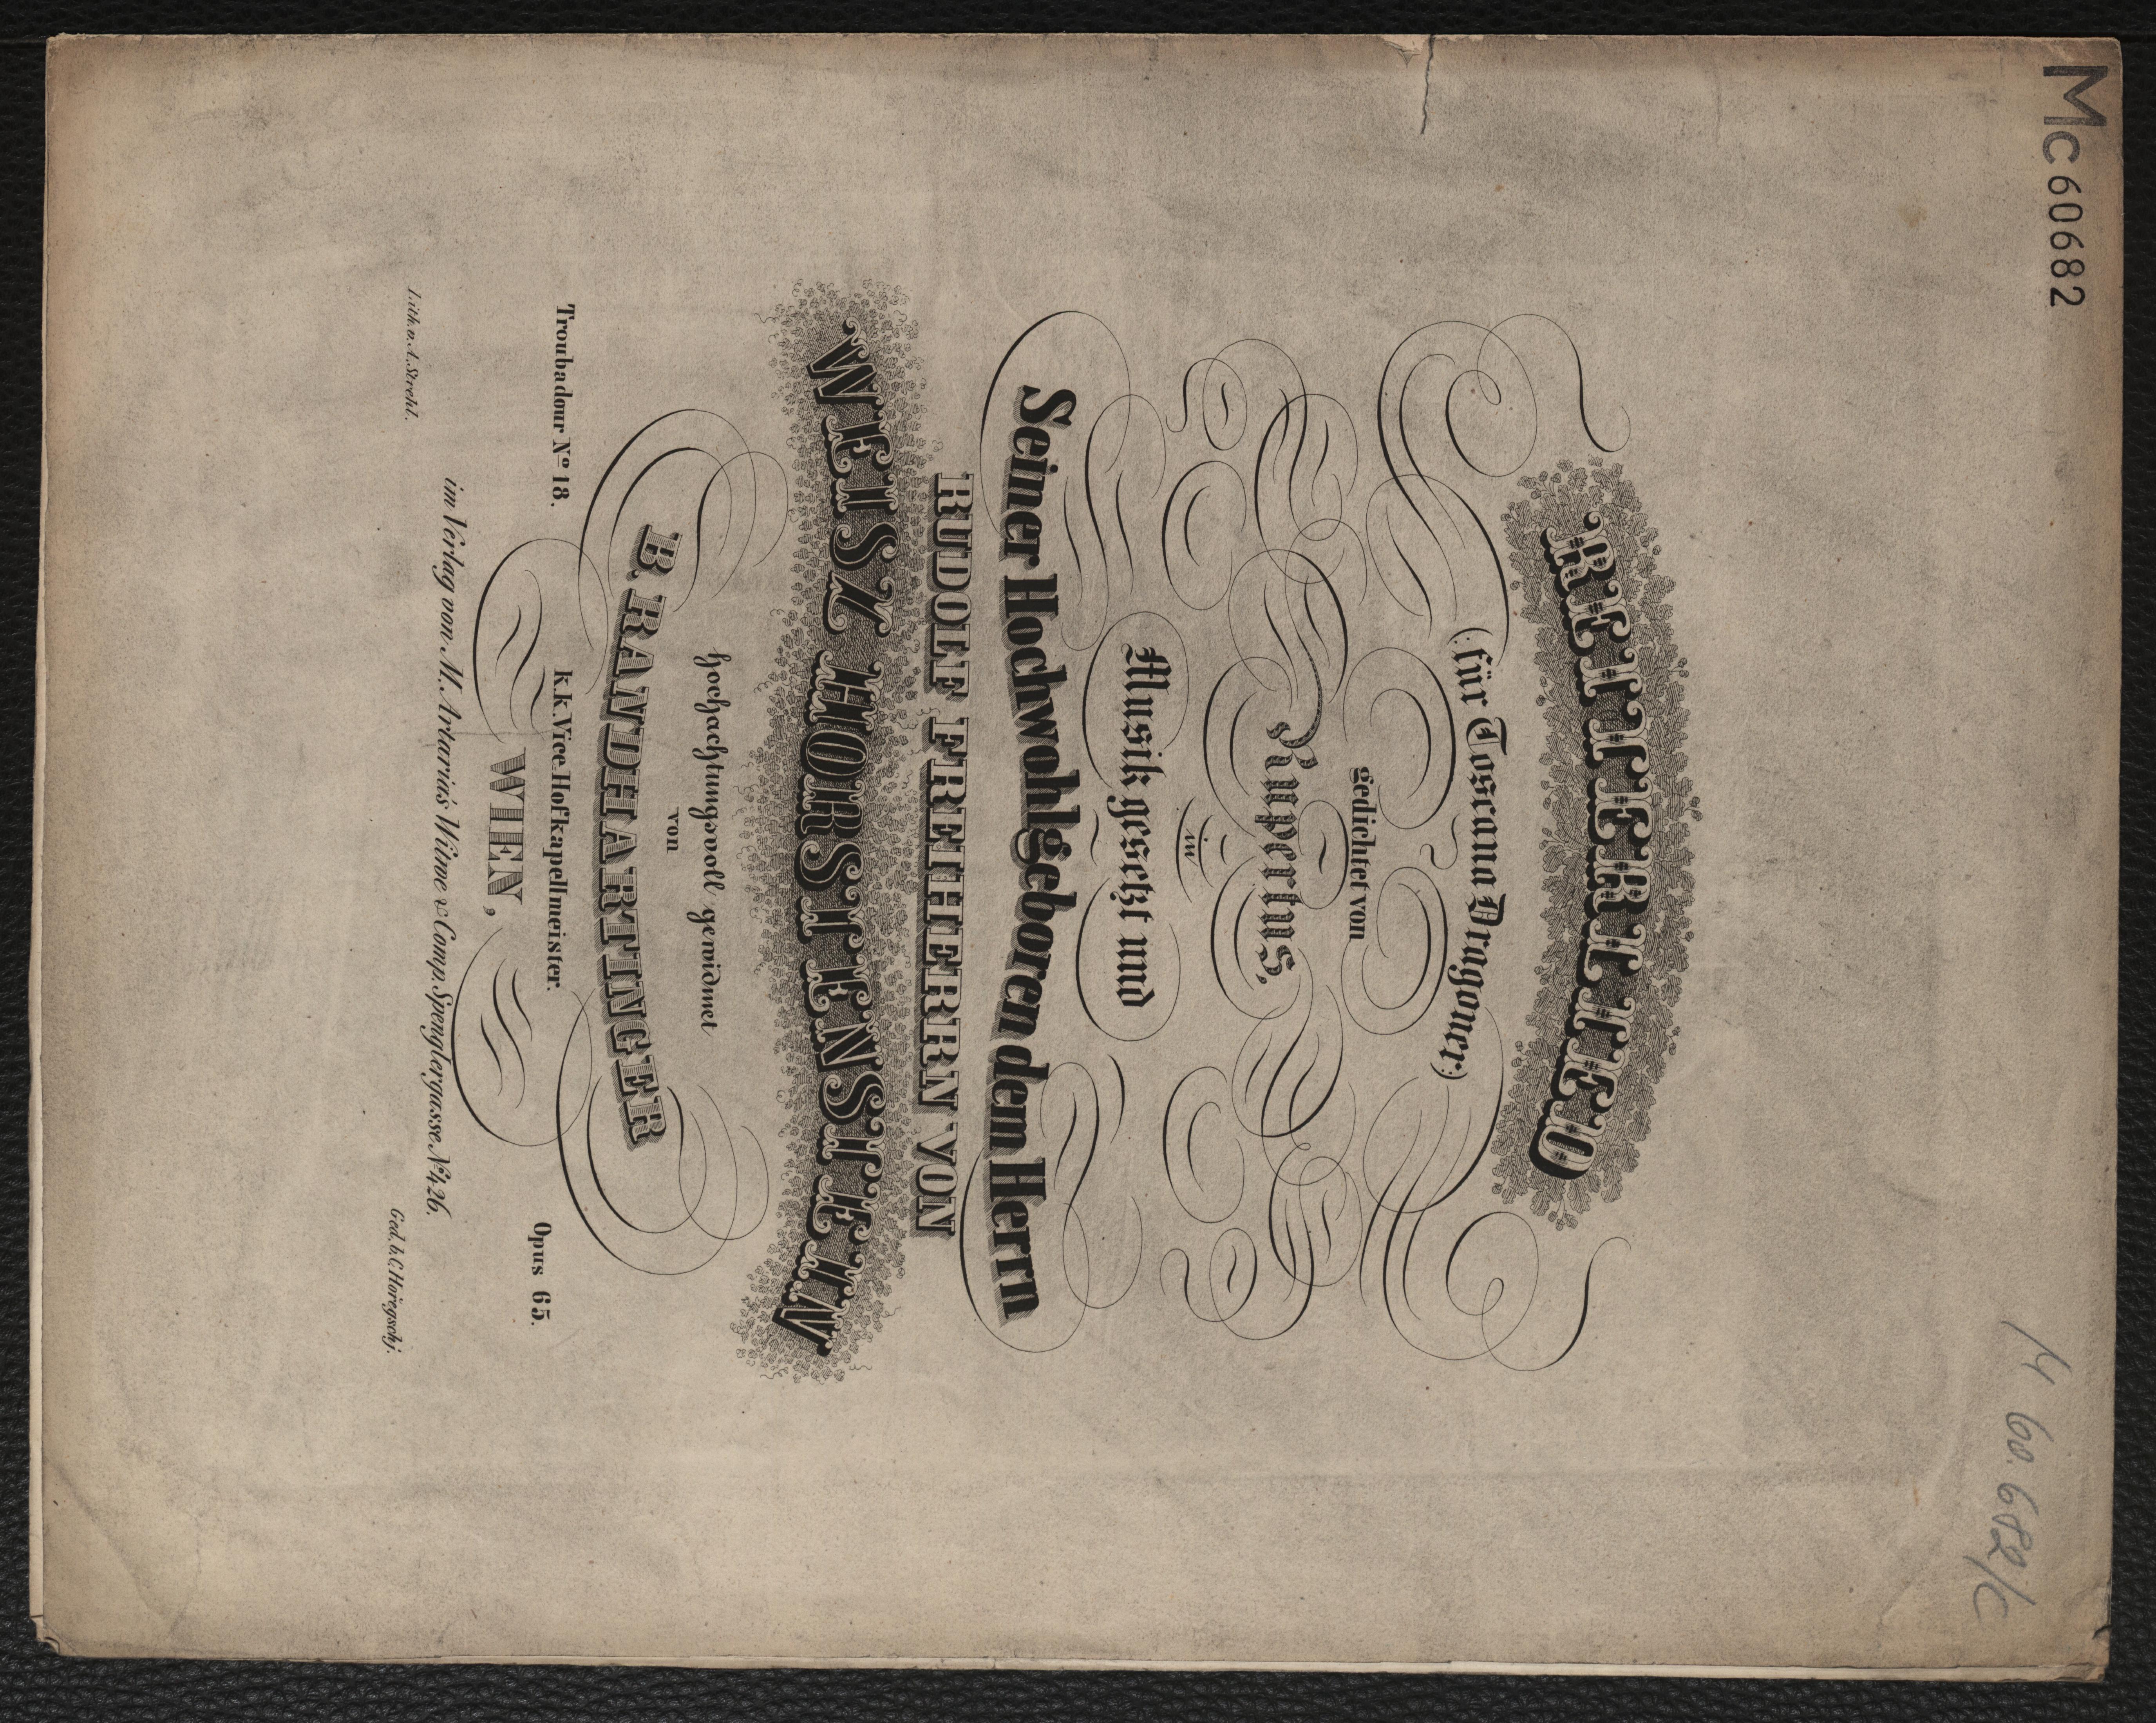 Mc 60682
M 60.682/c
REITTERLIED
(für Toscana Dragoner)
gedichtet von
Rupertus,
in
Musik gesetzt und
Seiner Hochwohlgeboren dem Herrn
RUDOLF FREIHERRN VON
WEISZ HORSTENSTEIN
hochachtungsvoll gewidmet
von
B. RANDHARTINGER
k.k. Vice-Hofkapellmeister.
Troubadour No 18.
Opus 65.
WIEN,
im Verlag von M. Artaria's Witwe & Comp. Spenglergasse No 426.
Lith. v. A. Strehl.
Ged. b. C. Hořegschj.